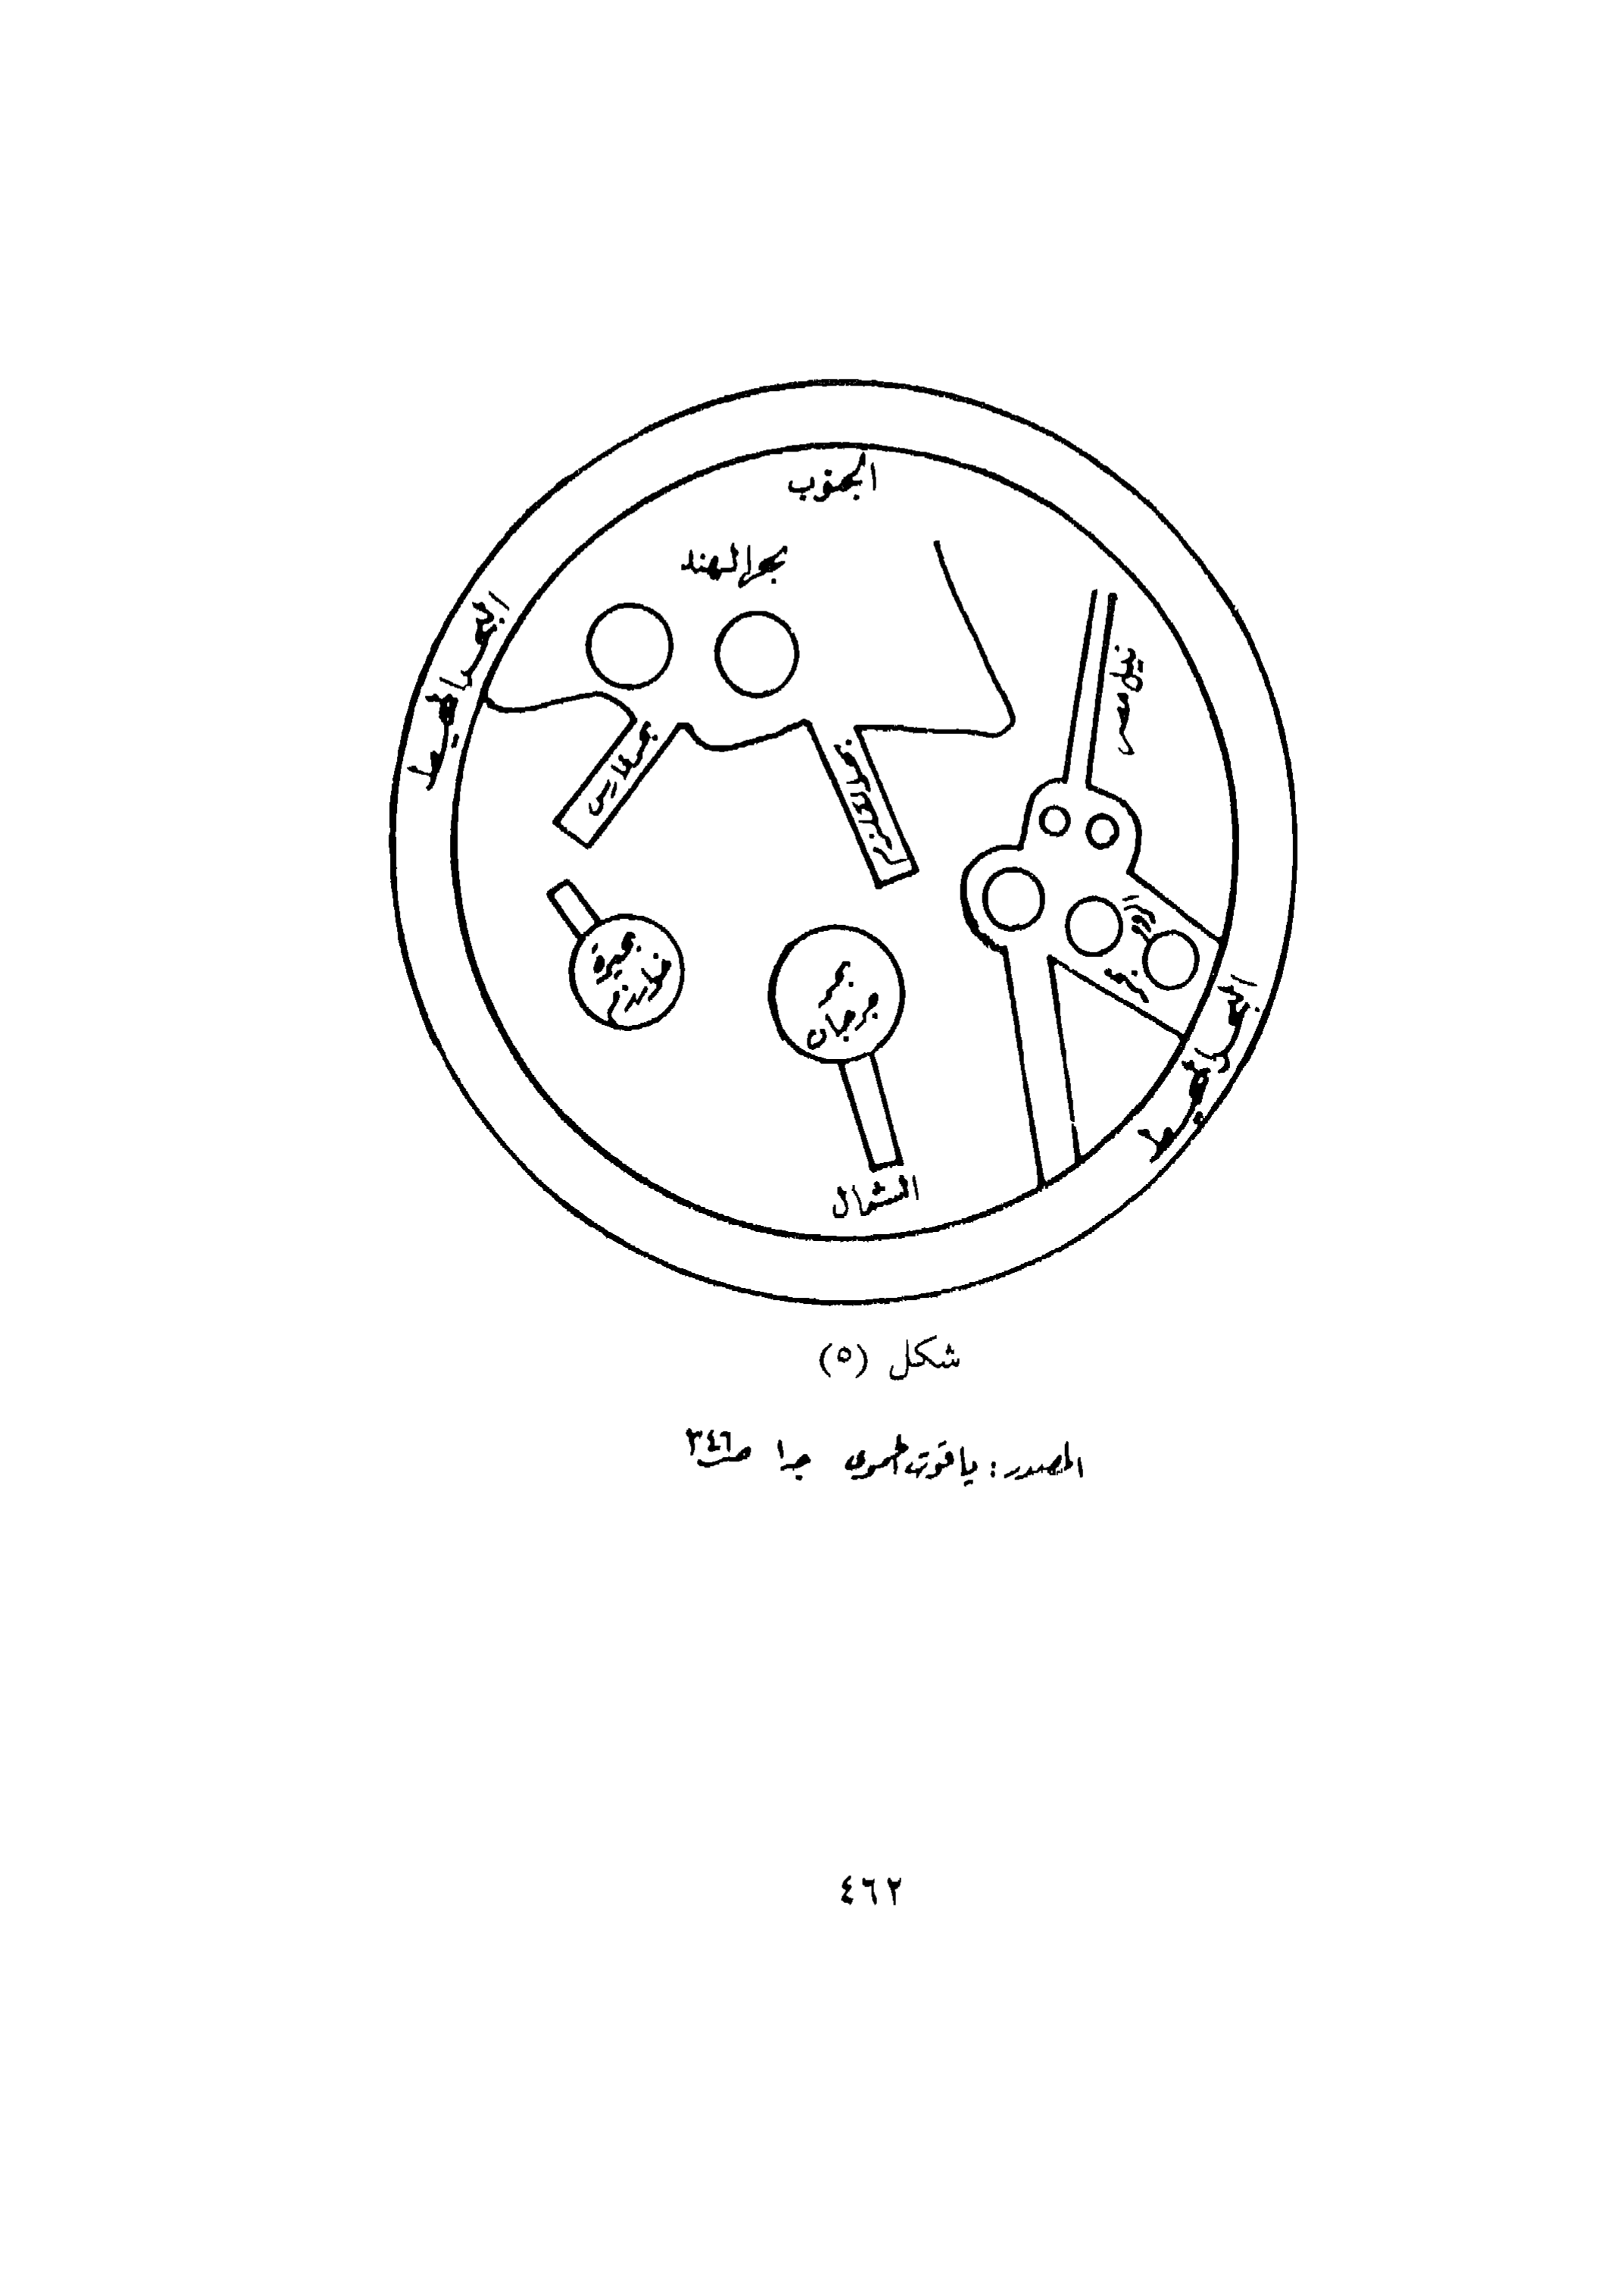 الجنوب
بحر الهند
البحر المحيط
بحر فارس
بحيرة
خوارزم
بحر
جرجان
البحر المحيط
الشمال
شكل (٥)
المصدر: ياقوت الحموى جـ١ صـ٣٤٦
٤٦٢